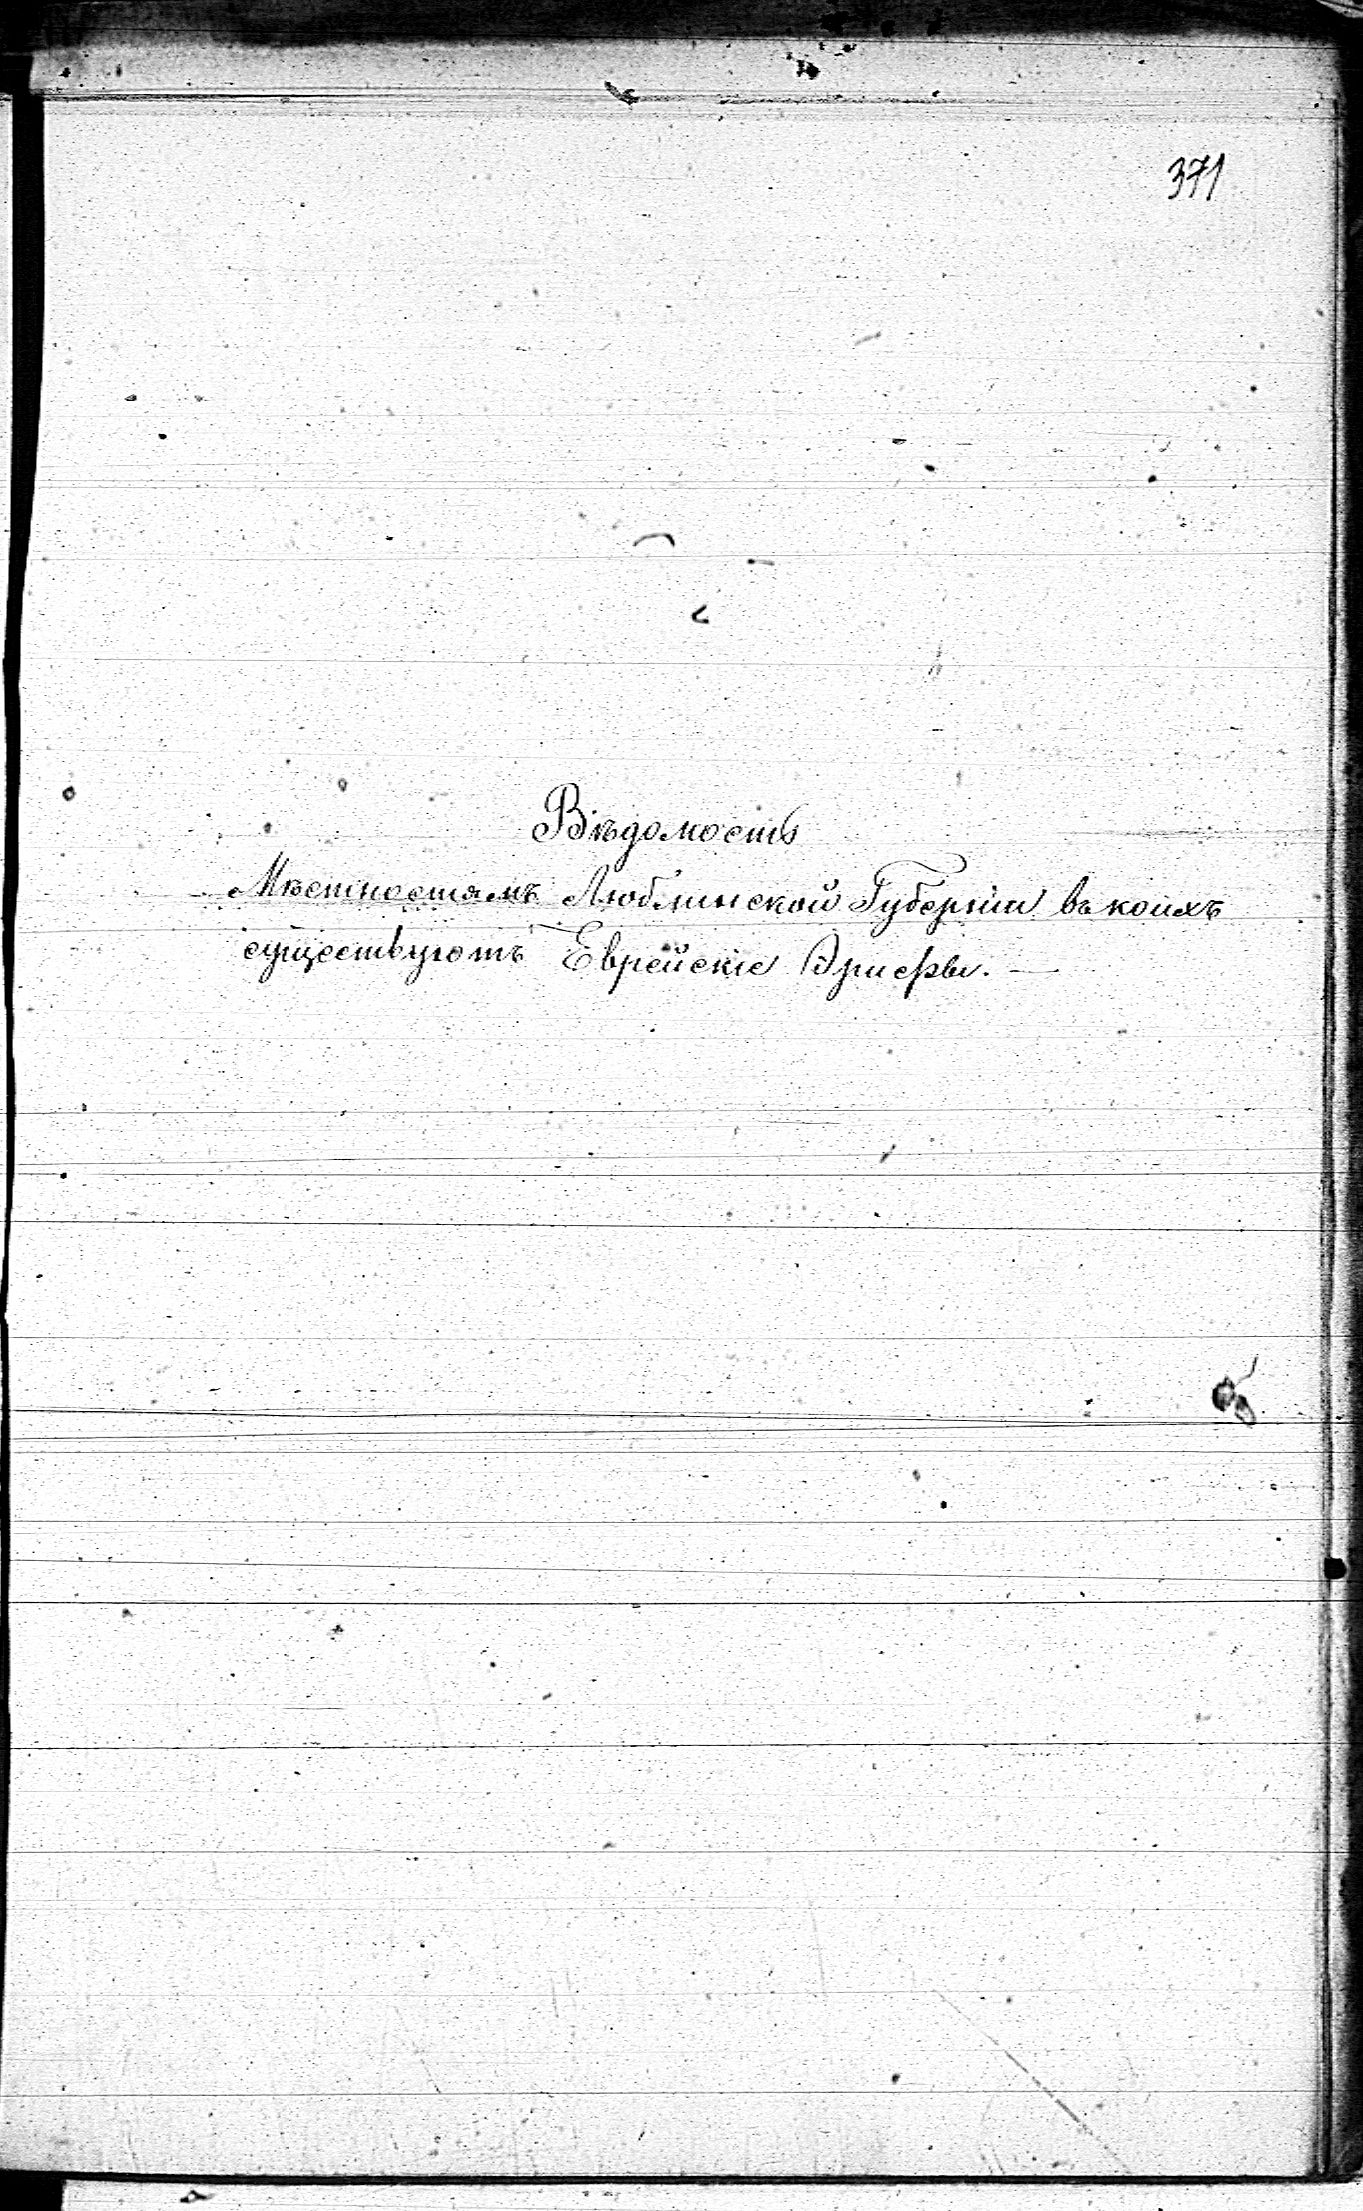 371
Вѣдомость
Мѣстностямъ Люблинской Губерніи въ коихъ
существуютъ Еврейскіе Эрисфы. —